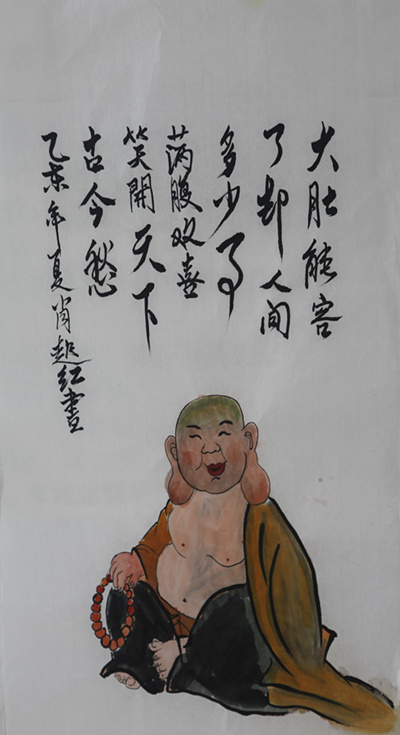 大肚能容
了却人间
多少事
满腹欢喜
笑開天下
古今愁
乙未年夏肖红畫